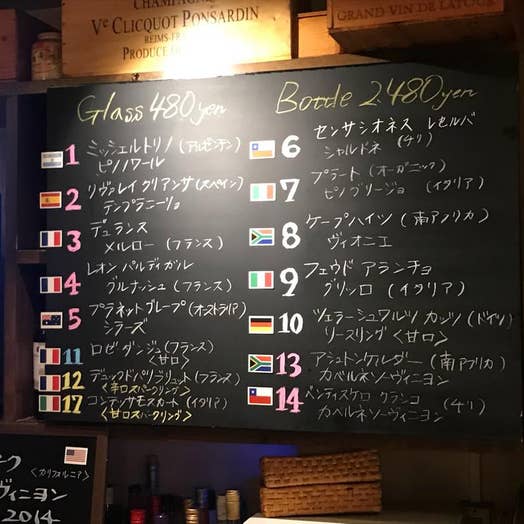 CHAMPAGNE
Vᵉ CLICQUOT PONSARDIN
REIMS-FRANCE
PRODUCE OF
GRAND VIN DE LATOUR
Glass 480yen
1 ミッシェルトリノ (アルゼンチン)
ピノノワール
2 リヴァレイ クリアンサ (スペイン)
テンプラニーリョ
3 デュランス
メルロー (フランス)
4 レオン パルディガル
グルナッシュ (フランス)
5 プラネットグレープ (オーストラリア)
シラーズ
11 ロゼ ダンジュ (フランス)
<甘口>
12 (フランス)
<辛口スパークリング>
17 コンテッサモスカート (イタリア)
<甘口スパークリング>
Bottle 2.480yen
6 センサシオネス レセルバ
シャルドネ (チリ)
7 プラート (オーガニック)
ピノ グリージョ (イタリア)
8 ケープハイツ (南アメリカ)
ヴィオニエ
9 フェウド アランチョ
グリッロ (イタリア)
10 ツェラーシュワルツ カッツ (ドイツ)
リースリング <甘口>
13 アシュトンケルダー (南アフリカ)
カベルネソーヴィニヨン
14 ベンティスケロ クランコ (チリ)
カベルネソーヴィニヨン
ーク <カリフォルニア>
ヴィニヨン
2014